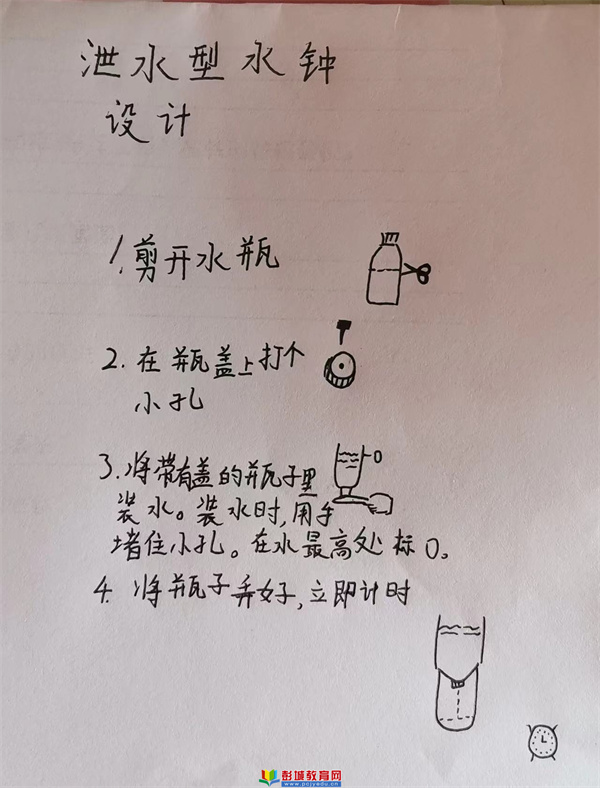 泄水型水钟
设计
1.剪开水瓶
2.在瓶盖上打个
小孔
3.将带有盖的瓶子里
装水。装水时,用手
堵住小孔。在水最高处标0。
0
4.将瓶子弄好,立即计时
彭城教育网
www.pcjyedu.cn